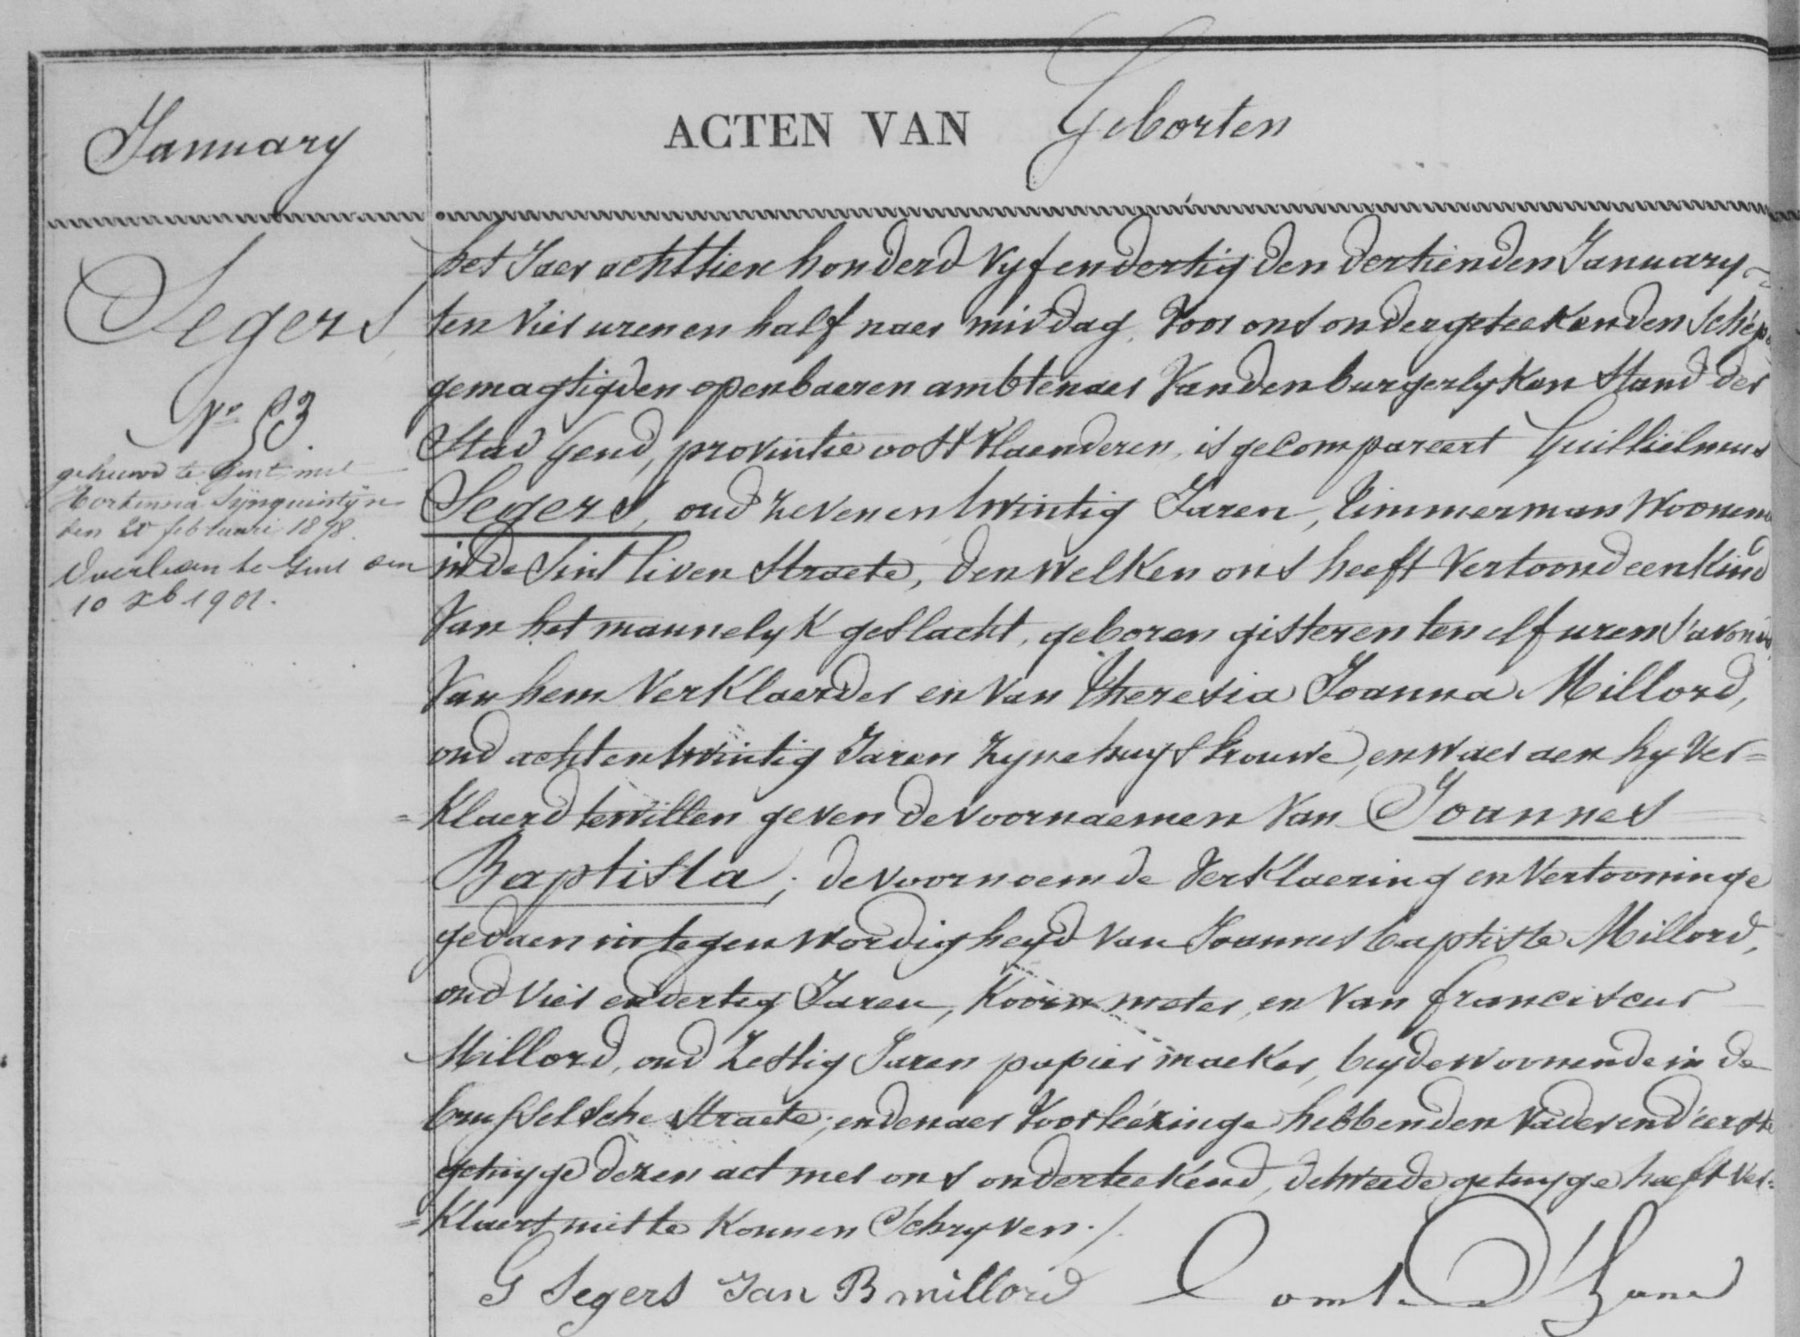 January
ACTEN VAN Geborten
Segers
N.o 53.
gehuwd te Gent met
Hortensia Synquintyn
den 20 februari 1878.
Overleden te Gent den
10 xb 1901.
het Jaer achttien honderd vyf en dertig den dertienden January
ten vier uren en half naer middag, Voor ons ondergeteekenden Schep
gemagtigden openbaeren ambtenaer Van den burgerlyken Stand der
Stad Gend, provintie oost Vlaenderen, is gecompareert Guillielmus
Segers, oud zeven en twintig Jaren, timmerman Woonend
in de Sint Liven Straete, den welken ons heeft Vertoond een Kind
Van het mannelyk geslacht, geboren gisteren ten elf uren s'avonds
Van hem Verklaerder en Van Theresia Joanna Millord,
oud acht en twintig Jaren zyne huysvrouwe, en waer aen hy Ver=
=Klaerd te willen geven de voornaemen Van Joannes
Baptista; de voornoemde Verklaering en Vertooninge
gedaen in tegenwordigheyd van Joannes baptiste Millord,
oud Vier en dertig Jaren, Koorn meter, en Van franciscus
Millord, oud Zestig Jaren papier maeker, beyde woonende in de
brusselsche Straete; en denaer Voorleézinge hebben den Vader en d'eerste
getuyge dezen act met ons onderteekend, de tweede getuyge heeft Ver=
=Klaert niet te Konnen Schryven./.
G Segers Jan B millord Comte D'hane